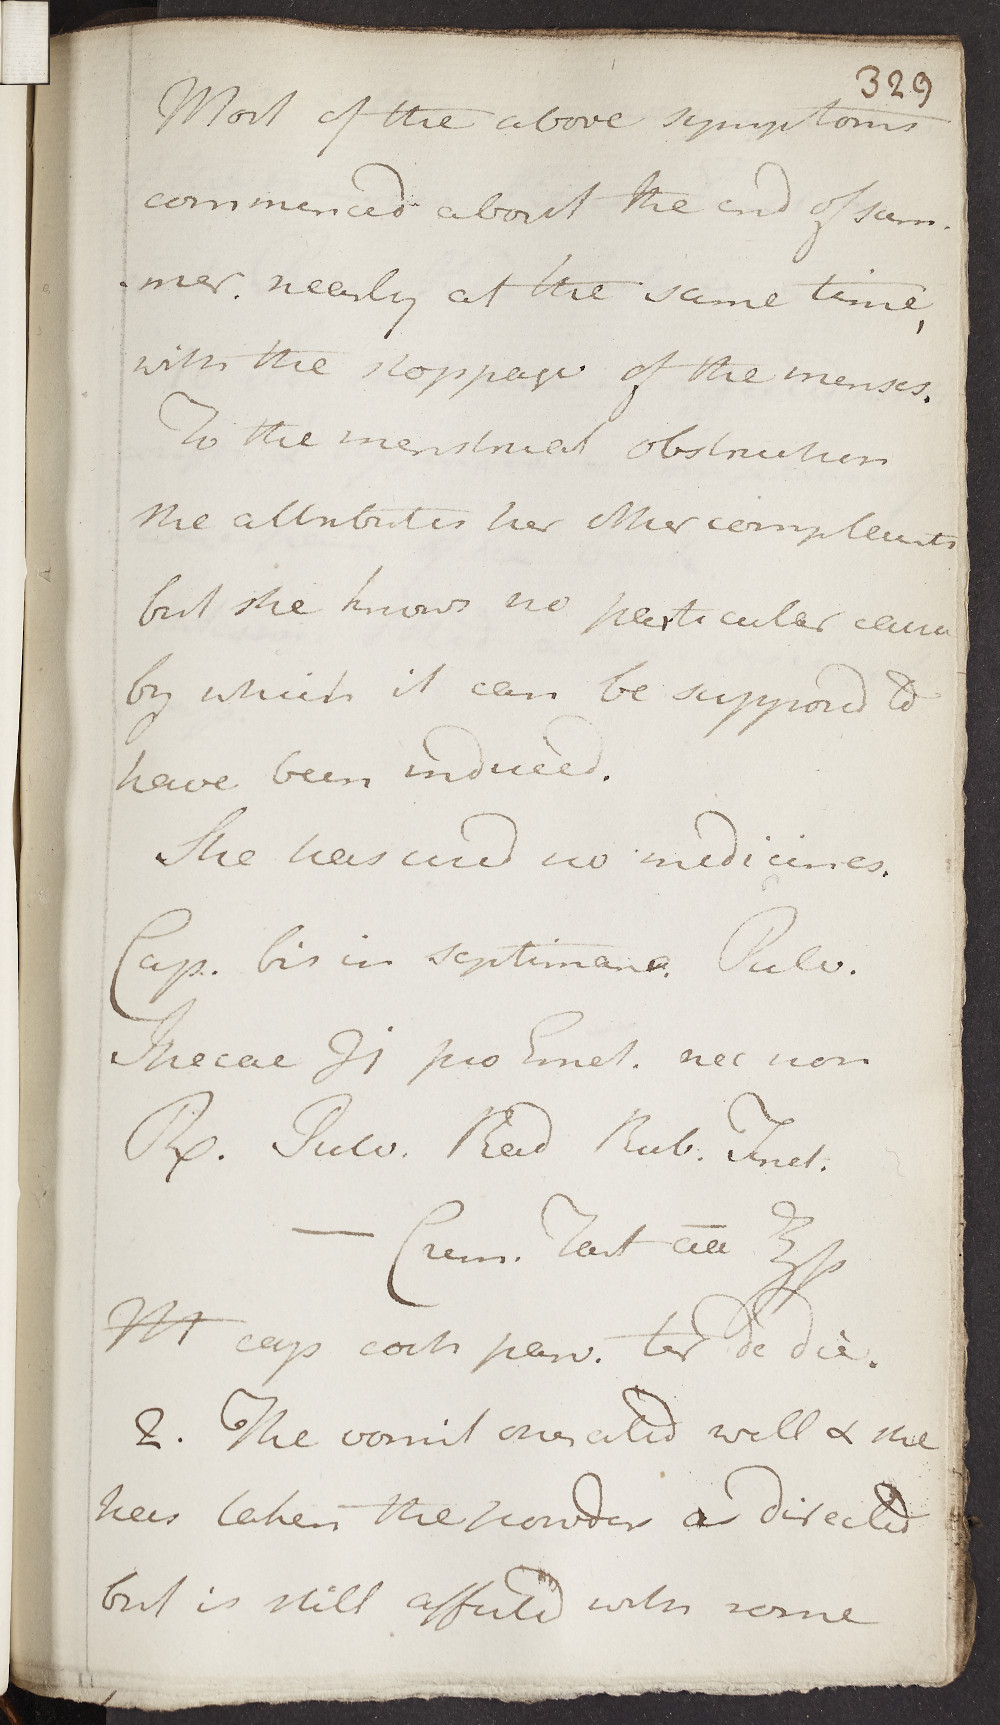 329
Most of the above symptoms
commenced about the end of sum-
-mer. nearly at the same time,
with the stoppage of the menses.
To the menstrual obstruction
she attributes her other complaints
but she knows no particular cause
by which it can be supposed to
have been induced.
She has used no medicines.
Cap. bis in septimana. Pulv.
Ipecac ℈j pro Emet. nec non
Rx. Pulv. Rad Rub. Tinct.
— Crem. Tart aa ℥ss
M cap coch parv. ter de die.
2. The vomit operated well & she
has taken the powder as directed
but is still affected with some